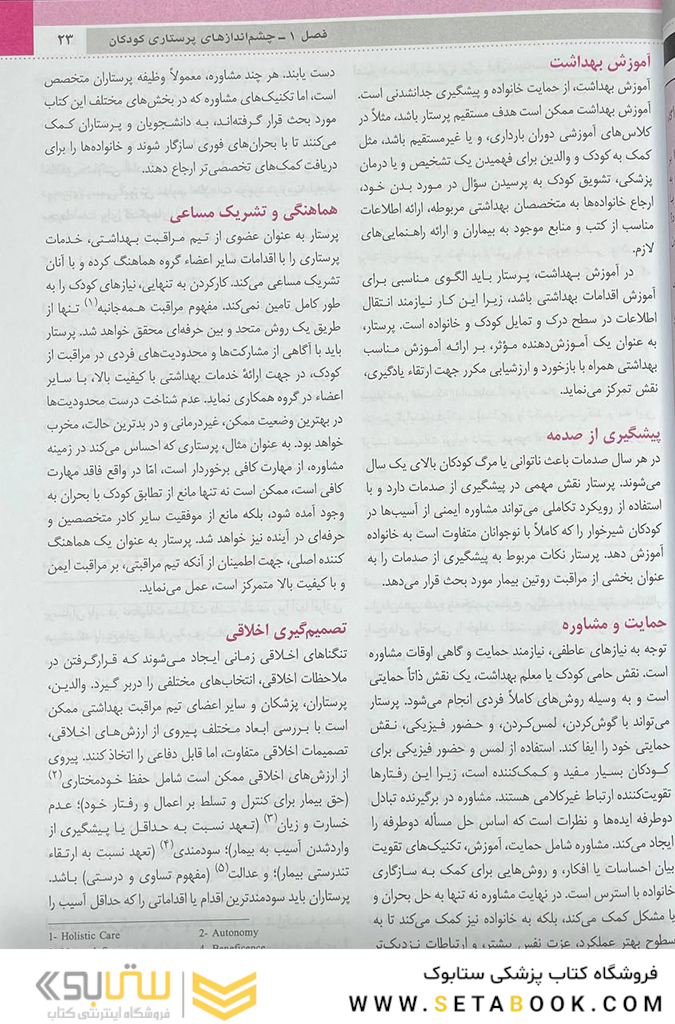 فصل ۱ ــ چشم‌اندازهای پرستاری کودکان
۲۳
آموزش بهداشت
آموزش بهداشت، از حمایت خانواده و پیشگیری جدانشدنی است.
آموزش بهداشت ممکن است هدف مستقیم پرستار باشد، مثلاً در
کلاس‌های آموزشی دوران بارداری، و یا غیرمستقیم باشد، مثل
کمک به کودک و والدین برای فهمیدن یک تشخیص و یا درمان
پزشکی، تشویق کودک به پرسیدن سؤال در مورد بدن خود،
ارجاع خانواده‌ها به متخصصان بهداشتی مربوطه، ارائه اطلاعات
مناسب از کتب و منابع موجود به بیماران و ارائه راهنمایی‌های
لازم.
در آموزش بهداشت، پرستار باید الگوی مناسبی برای
آموزش اقدامات بهداشتی باشد، زیرا این کار نیازمند انتقال
اطلاعات در سطح درک و تمایل کودک و خانواده است. پرستار،
به عنوان یک آموزش‌دهنده مؤثر، بر ارائه آموزش مناسب
بهداشتی همراه با بازخورد و ارزشیابی مکرر جهت ارتقاء یادگیری،
نقش تمرکز می‌نماید.
پیشگیری از صدمه
در هر سال صدمات باعث ناتوانی یا مرگ کودکان بالای یک سال
می‌شوند. پرستار نقش مهمی در پیشگیری از صدمات دارد و با
استفاده از رویکرد تکاملی می‌تواند مشاوره ایمنی از آسیب‌ها در
کودکان شیرخوار را که کاملاً با نوجوانان متفاوت است به خانواده
آموزش دهد. پرستار نکات مربوط به پیشگیری از صدمات را به
عنوان بخشی از مراقبت روتین بیمار مورد بحث قرار می‌دهد.
حمایت و مشاوره
توجه به نیازهای عاطفی، نیازمند حمایت و گاهی اوقات مشاوره
است. نقش حامی کودک یا معلم بهداشت، یک نقش ذاتاً حمایتی
است و به وسیله روش‌های کاملاً فردی انجام می‌شود. پرستار
می‌تواند با گوش‌کردن، لمس‌کردن، و حضور فیزیکی، نقش
حمایتی خود را ایفا کند. استفاده از لمس و حضور فیزیکی برای
کودکان بسیار مفید و کمک‌کننده است، زیرا این رفتارها
تقویت‌کننده ارتباط غیرکلامی هستند. مشاوره در برگیرنده تبادل
دوطرفه ایده‌ها و نظرات است که اساس حل مسأله دوطرفه را
ایجاد می‌کند. مشاوره شامل حمایت، آموزش، تکنیک‌های تقویت
بیان احساسات یا افکار، و روش‌هایی برای کمک به سازگاری
خانواده با استرس است. در نهایت مشاوره نه تنها به حل بحران و
یا مشکل کمک می‌کند، بلکه به خانواده نیز کمک می‌کند تا به
سطوح بهتر عملکرد، عزت نفس بیشتر، و ارتباطات نزدیک‌تر
دست یابند. هر چند مشاوره، معمولاً وظیفه پرستاران متخصص
است، اما تکنیک‌های مشاوره که در بخش‌های مختلف این کتاب
مورد بحث قرار گرفته‌اند، به دانشجویان و پرستاران کمک
می‌کنند تا با بحران‌های فوری سازگار شوند و خانواده‌ها را برای
دریافت کمک‌های تخصصی‌تر ارجاع دهند.
هماهنگی و تشریک مساعی
پرستار به عنوان عضوی از تیم مراقبت بهداشتی، خدمات
پرستاری را با اقدامات سایر اعضاء گروه هماهنگ کرده و با آنان
تشریک مساعی می‌کند. کارکردن به تنهایی، نیازهای کودک را به
طور کامل تامین نمی‌کند. مفهوم مراقبت همه‌جانبه(۱) تنها از
طریق یک روش متحد و بین حرفه‌ای محقق خواهد شد. پرستار
باید با آگاهی از مشارکت‌ها و محدودیت‌های فردی در مراقبت از
کودک، در جهت ارائهٔ خدمات بهداشتی با کیفیت بالا، با سایر
اعضاء در گروه همکاری نماید. عدم شناخت درست محدودیت‌ها
در بهترین وضعیت ممکن، غیردرمانی و در بدترین حالت، مخرب
خواهد بود. به عنوان مثال، پرستاری که احساس می‌کند در زمینه
مشاوره، از مهارت کافی برخوردار است، امّا در واقع فاقد مهارت
کافی است، ممکن است نه تنها مانع از تطابق کودک با بحران به
وجود آمده شود، بلکه مانع از موفقیت سایر کادر متخصصین و
حرفه‌ای در آینده نیز خواهد شد. پرستار به عنوان یک هماهنگ
کننده اصلی، جهت اطمینان از آنکه تیم مراقبتی، بر مراقبت ایمن
و با کیفیت بالا متمرکز است، عمل می‌نماید.
تصمیم‌گیری اخلاقی
تنگناهای اخلاقی زمانی ایجاد می‌شوند که قرارگرفتن در
ملاحظات اخلاقی، انتخاب‌های مختلفی را دربر گیرد. والدین،
پرستاران، پزشکان و سایر اعضای تیم مراقبت بهداشتی ممکن
است با بررسی ابعاد مختلف پیروی از ارزش‌های اخلاقی،
تصمیمات اخلاقی متفاوت، اما قابل دفاعی را اتخاذ کنند. پیروی
از ارزش‌های اخلاقی ممکن است شامل حفظ خودمختاری(۲)
(حق بیمار برای کنترل و تسلط بر اعمال و رفتار خود)؛ عدم
خسارت و زیان(۳) (تعهد نسبت به حداقل یا پیشگیری از
واردشدن آسیب به بیمار)؛ سودمندی(۴) (تعهد نسبت به ارتقاء
تندرستی بیمار)؛ و عدالت(۵) (مفهوم تساوی و درستی) باشد.
پرستاران باید سودمندترین اقدام یا اقداماتی را که حداقل آسیب را
1- Holistic Care
2- Autonomy
4- Beneficence
ستابوک
فروشگاه اینترنتی کتاب
فروشگاه کتاب پزشکی ستابوک
WWW.SETABOOK.COM